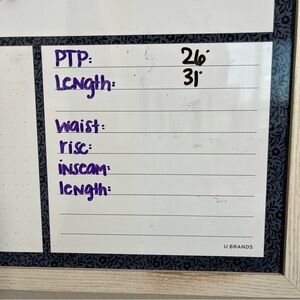 PTP: 26"
Length: 31"
Waist:
rise:
inseam:
length:
U BRANDS